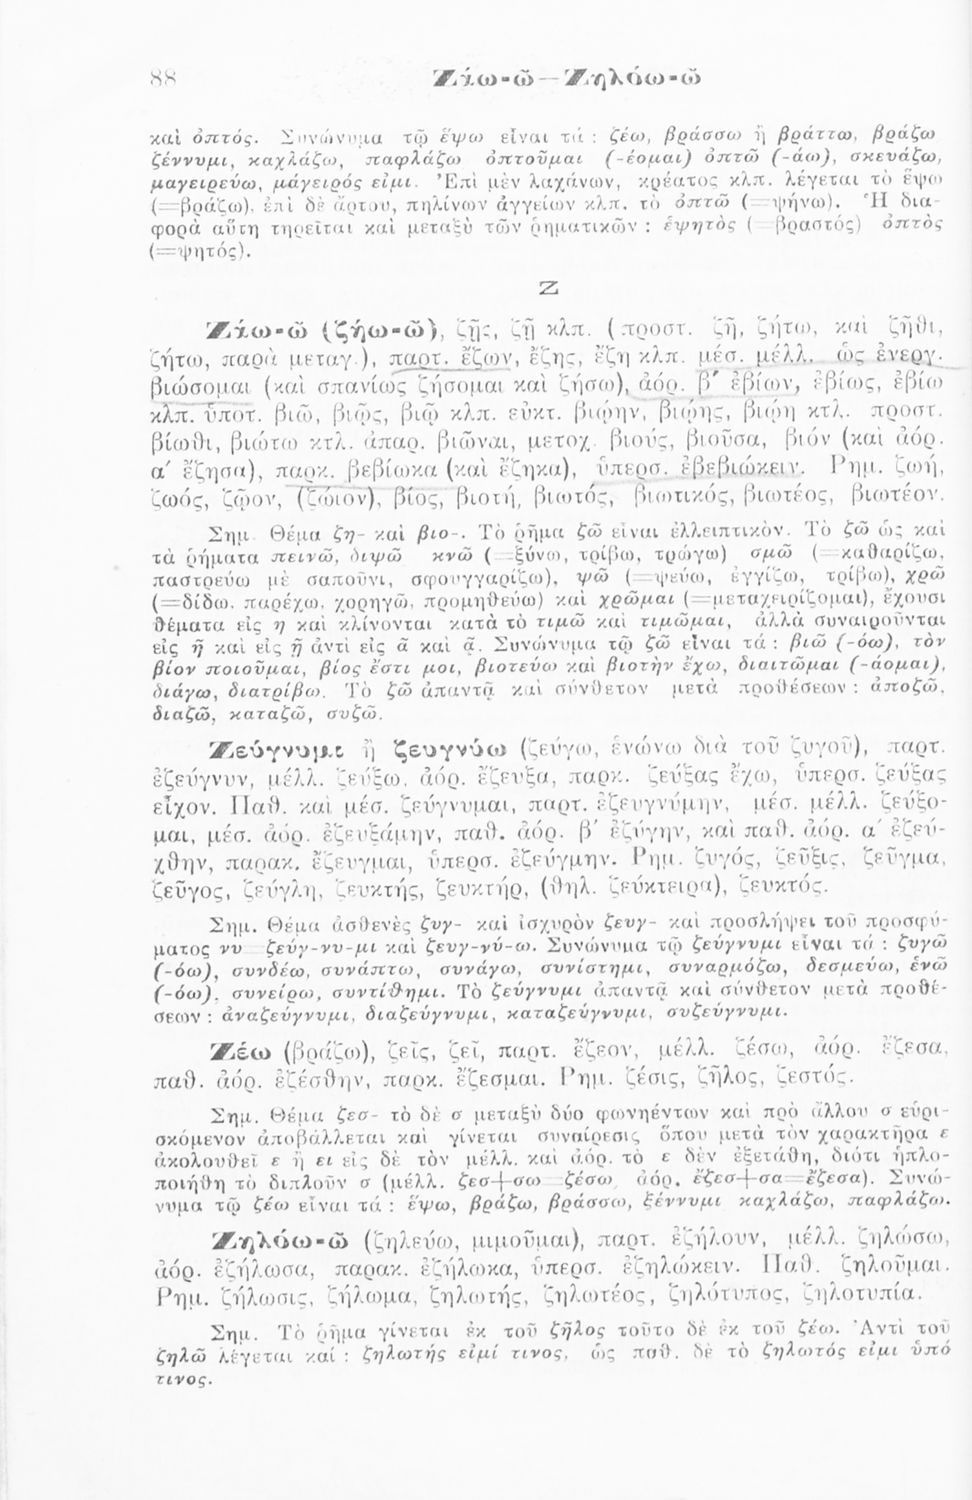 88 Ζάω-ῶ — Ζηλόω-ῶ
καὶ ὀπτός. Συνώνυμα τῷ ἕψω εἶναι τά : ζέω, βράσσω ἢ βράττω, βράζω
ζέννυμι, καχλάζω, παφλάζω ὀπτοῦμαι (-έομαι) ὀπτῶ (-άω), σκευάζω,
μαγειρεύω, μάγειρός εἰμι. Ἐπὶ μὲν λαχάνων, κρέατος κλπ. λέγεται τὸ ἕψω
(=βράζω), ἐπὶ δὲ ἄρτου, πηλίνων ἀγγείων κλπ. τὸ ὀπτῶ (=ψήνω). Ἡ δια-
φορὰ αὕτη τηρεῖται καὶ μεταξὺ τῶν ῥηματικῶν : ἑψητὸς (=βραστός) ὀπτὸς
(=ψητός).
Ζ
Ζάω-ῶ (ζήω-ῶ), ζῇς, ζῇ κλπ. (προστ. ζῆ, ζήτω, καὶ ζῆθι,
ζήτω, παρὰ μεταγ.), παρτ. ἔζων, ἔζης, ἔζη κλπ. μέσ. μέλλ. ὡς ἐνεργ.
βιώσομαι (καὶ σπανίως ζήσομαι καὶ ζήσω), ἀόρ. β΄ ἐβίων, ἐβίως, ἐβίω
κλπ. ὑποτ. βιῶ, βιῷς, βιῷ κλπ. εὐκτ. βιῴην, βιῴης, βιῴη κτλ. προστ.
βίωθι, βιώτω κτλ. ἀπαρ. βιῶναι, μετοχ. βιούς, βιοῦσα, βιόν (καὶ ἀόρ.
α΄ ἔζησα), παρκ. βεβίωκα (καὶ ἔζηκα), ὑπερσ. ἐβεβιώκειν. Ρημ. ζωή,
ζωός, ζῷον, (ζώιον), βίος, βιοτή, βιωτός, βιωτικός, βιωτέος, βιωτέον.
Σημ. Θέμα ζη- καὶ βιο-. Τὸ ῥῆμα ζῶ εἶναι ἐλλειπτικὸν. Τὸ ζῶ ὡς καὶ
τὰ ῥήματα πεινῶ, διψῶ κνῶ (=ξύνω, τρίβω, τρώγω) σμῶ (=καθαρίζω,
παστρεύω μὲ σαποῦνι, σφουγγαρίζω), ψῶ (=ψεύω, ἐγγίζω, τρίβω), χρῶ
(=δίδω, παρέχω, χορηγῶ, προμηθεύω) καὶ χρῶμαι (=μεταχειρίζομαι), ἔχουσι
θέματα εἰς η καὶ κλίνονται κατὰ τὸ τιμῶ καὶ τιμῶμαι, ἀλλὰ συναιροῦνται
εἰς ῆ καὶ εἰς ῇ ἀντὶ εἰς ᾶ καὶ ᾷ. Συνώνυμα τῷ ζῶ εἶναι τά : βιῶ (-όω), τὸν
βίον ποιοῦμαι, βίος ἔστι μοι, βιοτεύω καὶ βιοτὴν ἔχω, διαιτῶμαι (-άομαι),
διάγω, διατρίβω. Τὸ ζῶ ἀπαντᾷ καὶ σύνθετον μετὰ προθέσεων : ἀποζῶ,
διαζῶ, καταζῶ, συζῶ.
Ζεύγνυμι ἢ ζευγνύω (ζεύγω, ἑνώνω διὰ τοῦ ζυγοῦ), παρτ.
ἐζεύγνυν, μέλλ. ζεύξω, ἀόρ. ἔζευξα, παρκ. ζεύξας ἔχω, ὑπερσ. ζεύξας
εἶχον. Παθ. καὶ μέσ. ζεύγνυμαι, παρτ. ἐζευγνύμην, μέσ. μέλλ. ζεύξο-
μαι, μέσ. ἀόρ. ἐζευξάμην, παθ. ἀόρ. β΄ ἐζύγην, καὶ παθ. ἀόρ. α΄ ἐζεύ-
χθην, παρακ. ἔζευγμαι, ὑπερσ. ἐζεύγμην. Ρημ. ζυγός, ζεῦξις, ζεῦγμα,
ζεῦγος, ζεύγλη, ζευκτής, ζευκτήρ, (θηλ. ζεύκτειρα), ζευκτός.
Σημ. Θέμα ἀσθενὲς ζυγ- καὶ ἰσχυρὸν ζευγ- καὶ προσλήψει τοῦ προσφύ-
ματος νυ ζεύγ-νυ-μι καὶ ζευγ-νύ-ω. Συνώνυμα τῷ ζεύγνυμι εἶναι τά : ζυγῶ
(-όω), συνδέω, συνάπτω, συνάγω, συνίστημι, συναρμόζω, δεσμεύω, ἑνῶ
(-όω), συνείρω, συντίθημι. Τὸ ζεύγνυμι ἀπαντᾷ καὶ σύνθετον μετὰ προθέ-
σεων : ἀναζεύγνυμι, διαζεύγνυμι, καταζεύγνυμι, συζεύγνυμι.
Ζέω (βράζω), ζεῖς, ζεῖ, παρτ. ἔζεον, μέλλ. ζέσω, ἀόρ. ἔζεσα,
παθ. ἀόρ. ἐζέσθην, παρκ. ἔζεσμαι. Ρημ. ζέσις, ζῆλος, ζεστός.
Σημ. Θέμα ζεσ- τὸ δὲ σ μεταξὺ δύο φωνηέντων καὶ πρὸ ἄλλου σ εὑρι-
σκόμενον ἀποβάλλεται καὶ γίνεται συναίρεσις ὅπου μετὰ τὸν χαρακτῆρα ε
ἀκολουθεῖ ε ἢ ει εἰς δὲ τὸν μέλλ. καὶ ἀόρ. τὸ ε δὲν ἐξετάθη, διότι ἡπλο-
ποιήθη τὸ διπλοῦν σ (μέλλ. ζεσ+σω=ζέσω, ἀόρ. ἔζεσ+σα=ἔζεσα). Συνώ-
νυμα τῷ ζέω εἶναι τά : ἕψω, βράζω, βράσσω, ξέννυμι καχλάζω, παφλάζω.
Ζηλόω-ῶ (ζηλεύω, μιμοῦμαι), παρτ. ἐζήλουν, μέλλ. ζηλώσω,
ἀόρ. ἐζήλωσα, παρακ. ἐζήλωκα, ὑπερσ. ἐζηλώκειν. Παθ. ζηλοῦμαι.
Ρημ. ζήλωσις, ζήλωμα, ζηλωτής, ζηλωτέος, ζηλότυπος, ζηλοτυπία.
Σημ. Τὸ ῥῆμα γίνεται ἐκ τοῦ ζῆλος τοῦτο δὲ ἐκ τοῦ ζέω. Ἀντὶ τοῦ
ζηλῶ λέγεται καί : ζηλωτής εἰμί τινος, ὡς παθ. δὲ τὸ ζηλωτός εἰμι ὑπό
τινος.